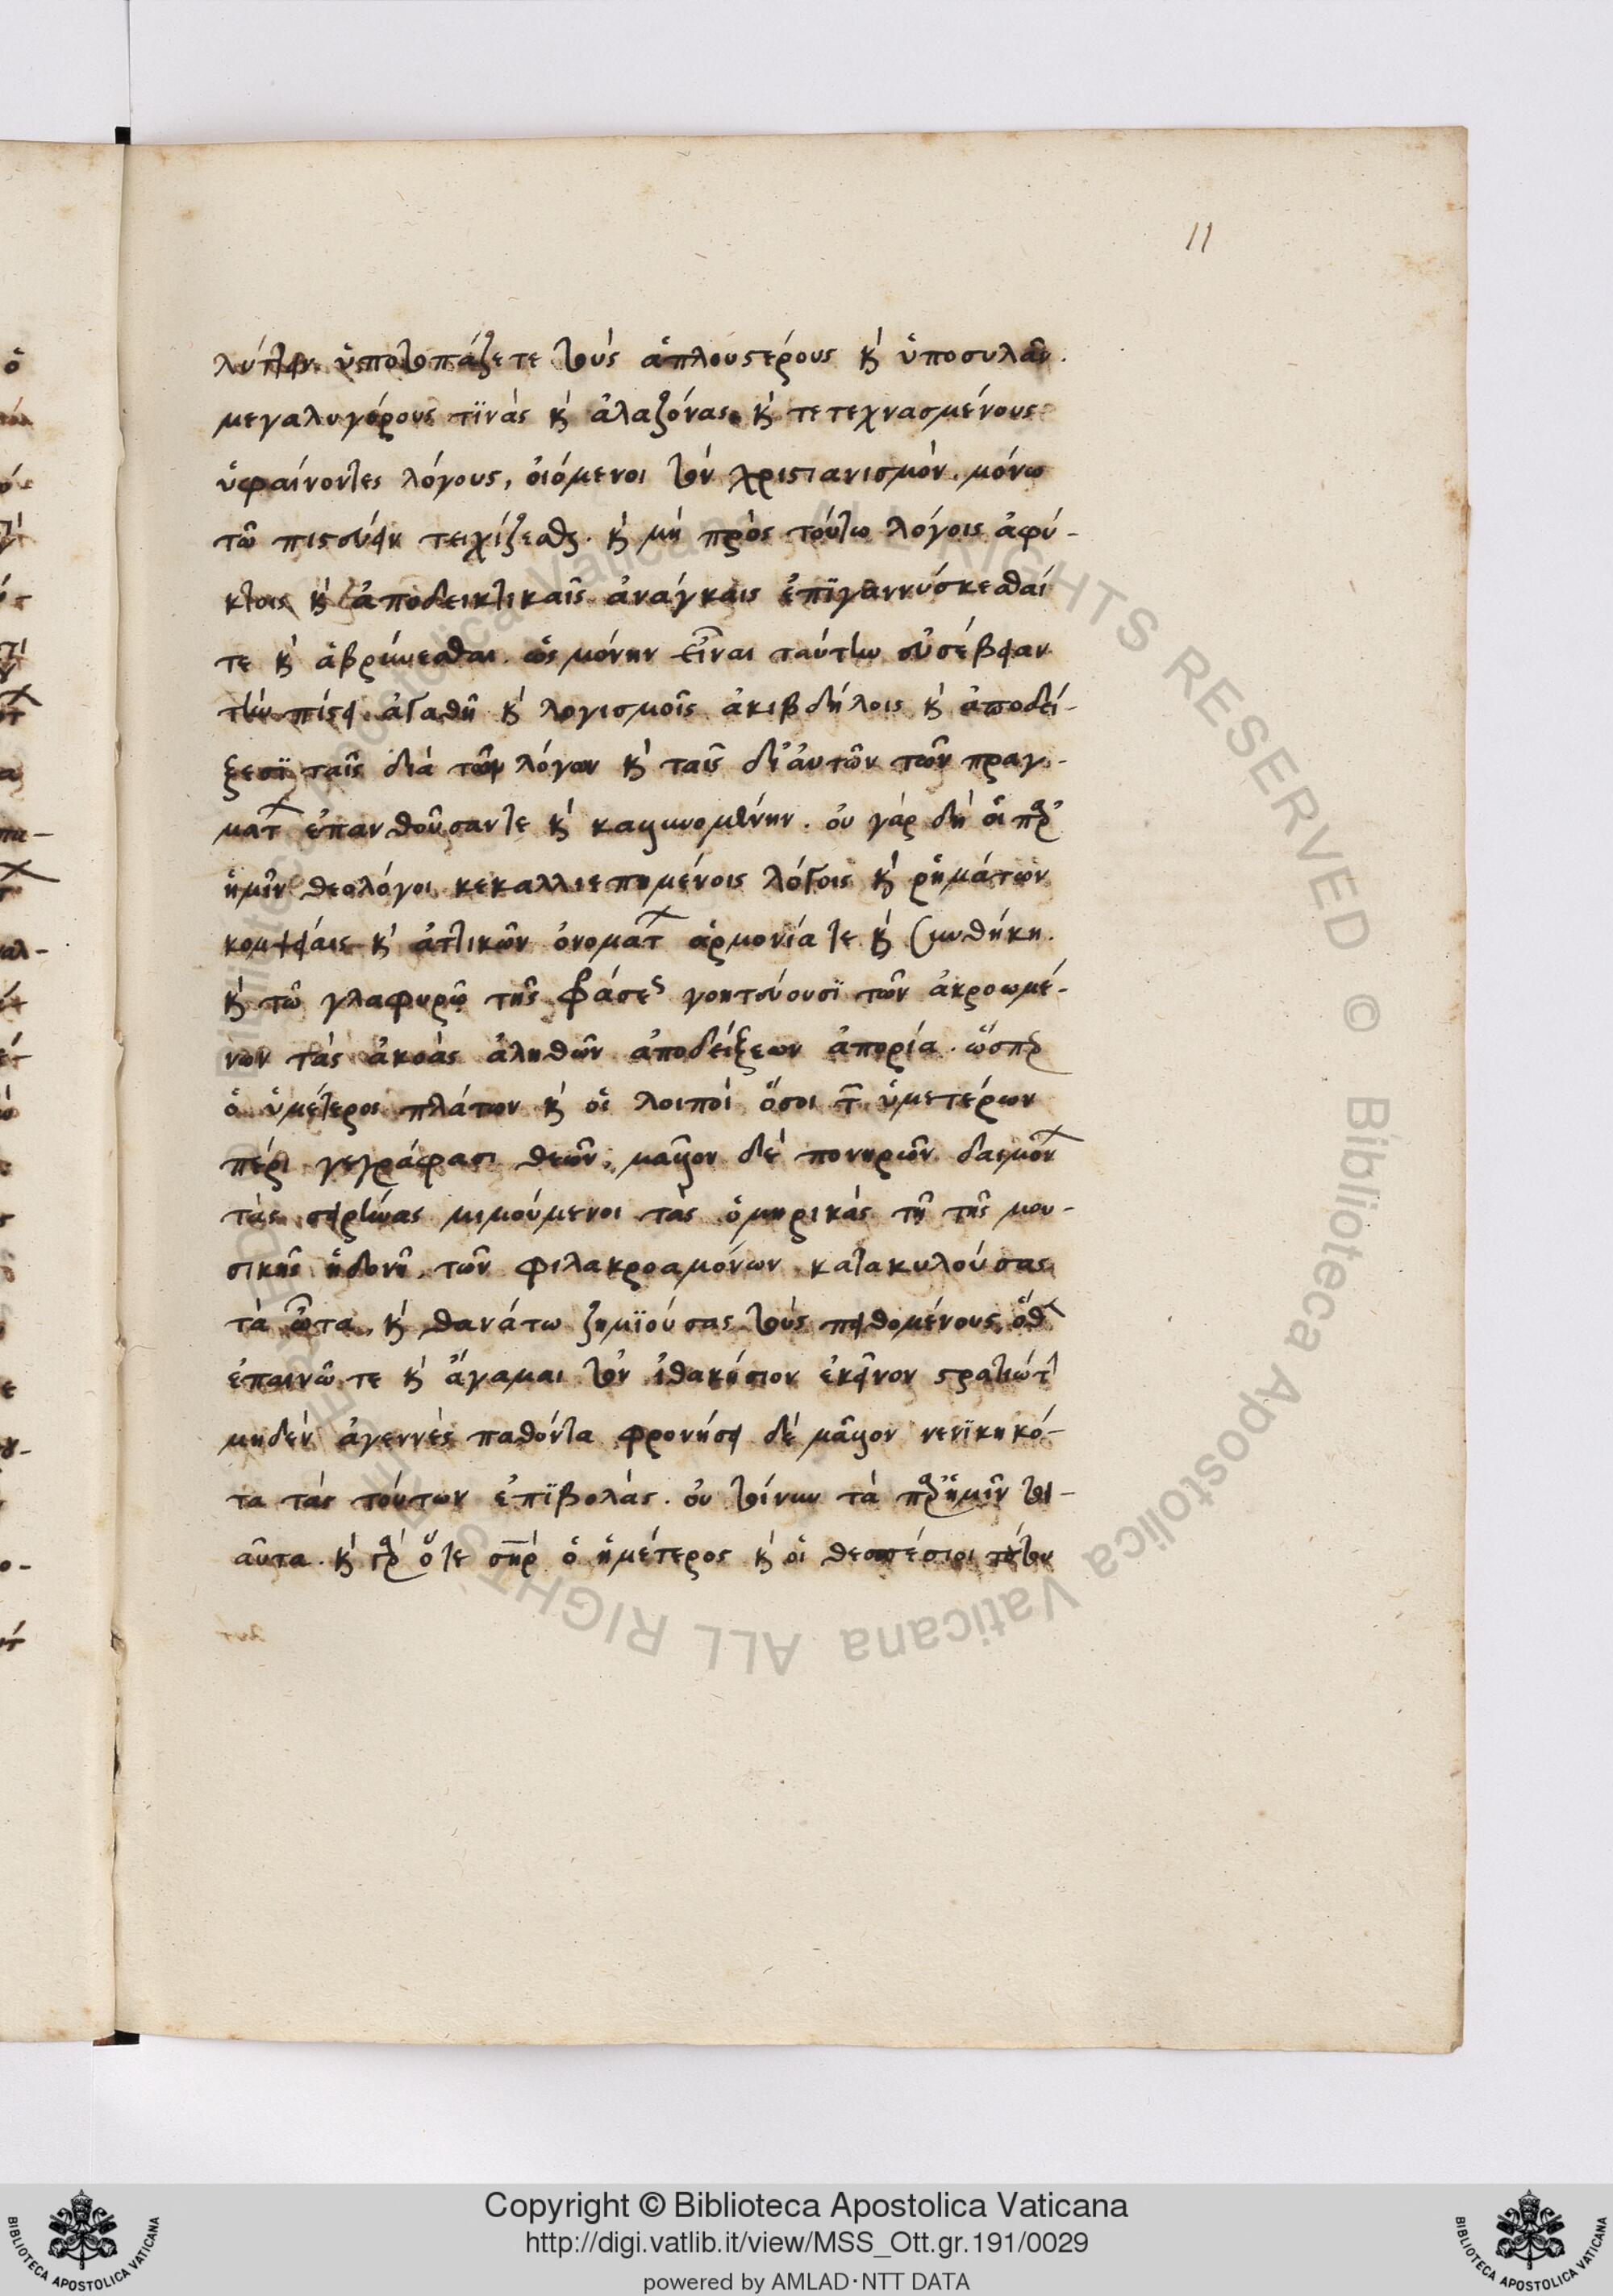 11
λύπειν ὑποτοπάζετε τοὺς ἁπλουστέρους κ̀ ὑποσυλᾶν.
μεγαληγόρους τϊνὰς κ̀ ἀλαζόνας κ̀ τετεχνασμένους
ὑφαίνοντες λόγους, οἰόμενοι τὸν χριστιανισμὸν. μόνω
τῶ πιστεύειν τειχίζεσθαι. κ̀ μὴ πρὸς τούτω λόγοις ἀφύ-
κτοις κ̀ ἀποδεικτικαῖς ἀνάγκαις ἐπϊγαννύσκεσθαί
τε κ̀ ἁβρύνεσθαι. ὡς μόνην εἶναι ταύτην εὐσέβειαν
τὴν πίστει ἀγαθῆ κ̀ λογισμοῖς ἀκιβδήλοις κ̀ ἀποδεί-
ξεσϊ ταῖς διὰ τῶν λόγων κ̀ ταῖς δι' αὐτῶν τῶν πραγ-
μάτων ἐπανθοῦσαν τε κ̀ καλλυνομένην. οὐ γὰρ δὴ οἱ παρ'
ἡμῖν θεολόγοι κεκαλλιεπημένοις λόγοις κ̀ ῥημάτων
κομψείαις κ̀ ἀττικῶν ὀνομάτων ἁρμονία τε κ̀ συνθήκη.
κ̀ τῶ γλαφυρῶ τῆς φράσεως γοητεύουσϊ τῶν ἀκροωμέ-
νων τὰς ἀκοὰς ἀληθῶν ἀποδείξεων ἀπορία. ὥσπερ
ὁ ὑμέτερος πλάτων κ̀ οἱ λοιποὶ ὅσοι τῶν ὑμετέρων
πέρι γεγράφασι θεῶν, μᾶλλον δὲ πονηρῶν δαιμόνων
τὰς σειρῆνας μιμούμενοι τὰς ὁμηρικὰς τῆ τῆς μου-
σικῆς ἡδονῆ, τῶν φιλακροαμόνων κατακηλούσας
τὰ ὦτα, κ̀ θανάτω ζημϊούσας τοὺς πειθομένους, ὅθεν
ἐπαινῶ τε κ̀ ἄγαμαι τὸν ἰθακήσιον ἐκεῖνον στρατιώτην
μηδὲν ἀγεννὲς παθόντα φρονήσει δὲ μᾶλλον νενϊκηκό-
τα τὰς τούτων ἐπϊβολάς. οὐ τοίνυν τὰ παρ' ἡμῖν τοι-
αῦτα. κ̀ γὰρ ὅ τε σωτὴρ ὁ ἡμέτερος κ̀ οἱ θεσπέσιοι τούτου
Copyright © Biblioteca Apostolica Vaticana
http://digi.vatlib.it/view/MSS_Ott.gr.191/0029
powered by AMLAD·NTT DATA